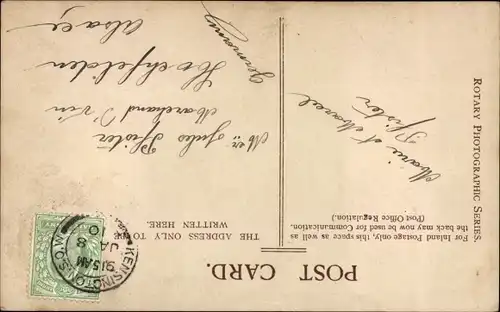 POST CARD.
For Inland Postage, only, this space as well as
the back may now be used for Communication.
(Post Office Regulation.)
THE ADDRESS ONLY TO BE
WRITTEN HERE.
ROTARY PHOTOGRAPHIC SERIES.
KENSINGTON S.O. W
9.15 AM
JA 8
10
Marie et Marcel
Pfister
Mr Jules Pfister
Marchand d'vin
Hochfelden
Alsace
Germany